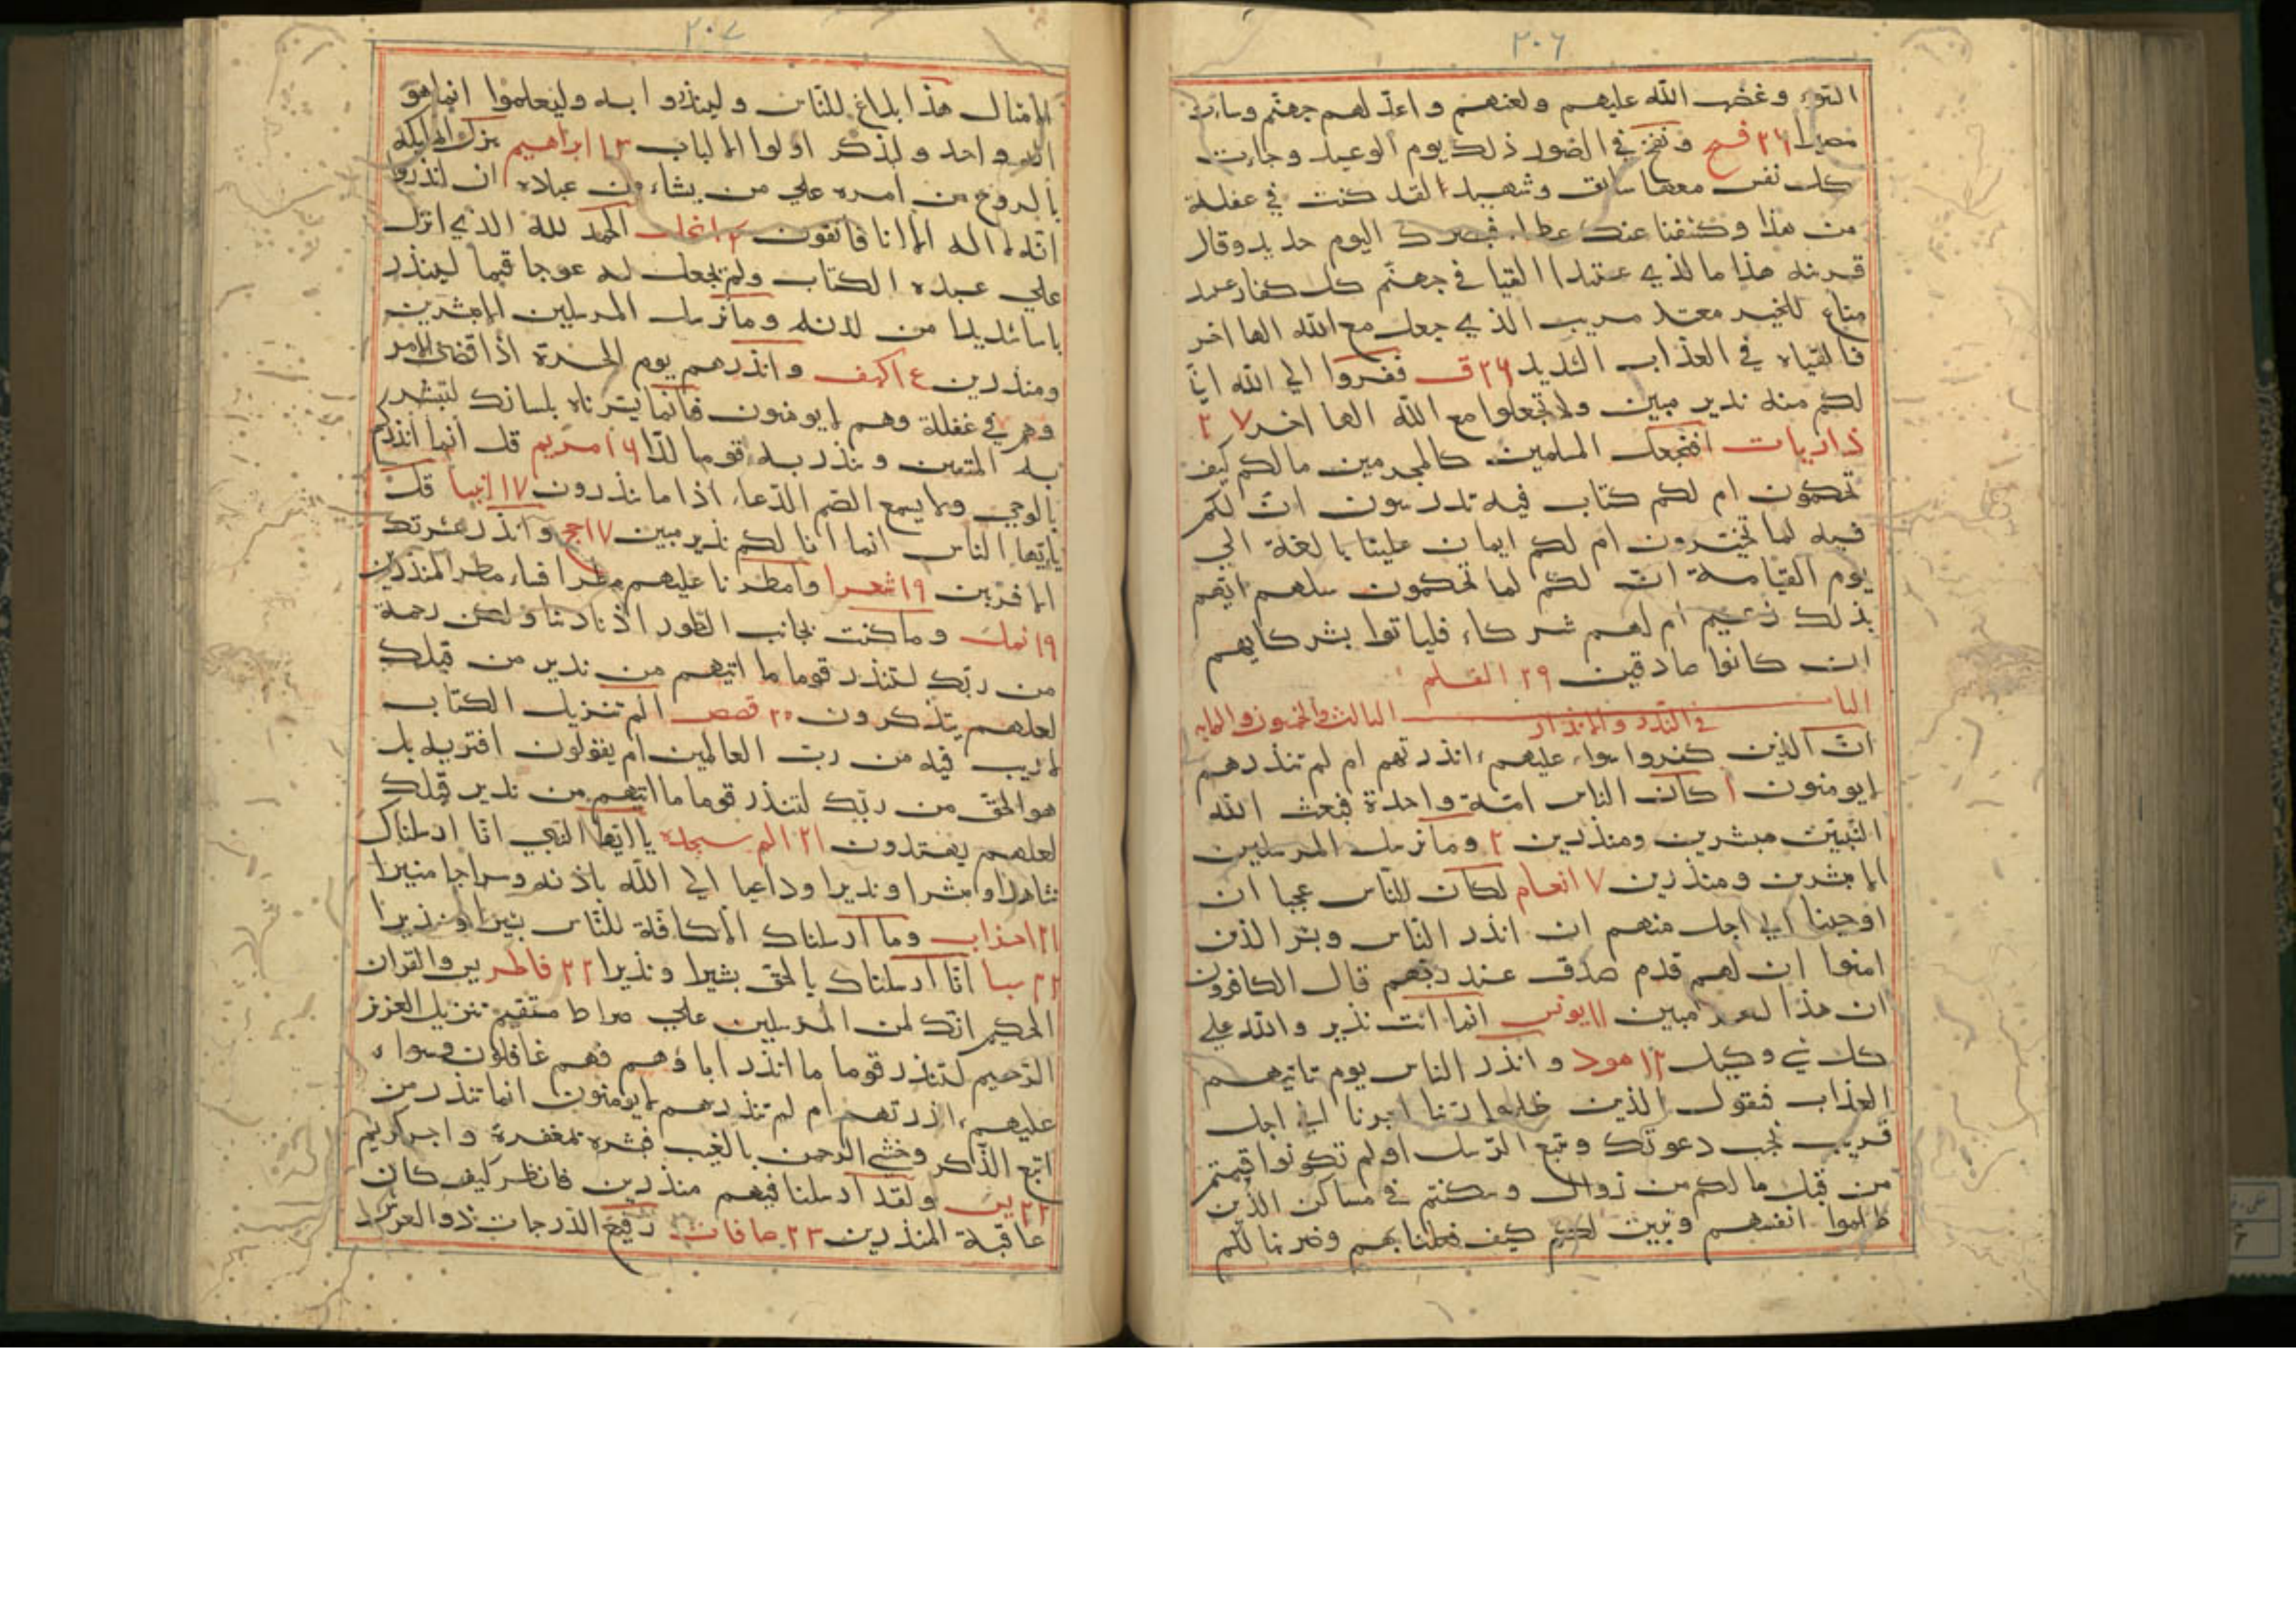 ٣٠٦
السوء وغضب الله عليهم ولعنهم واعد لهم جهنم وساءت
مصيرا ٢٦ فتح ونفخ في الصور ذلك يوم الوعيد وجاءت
كل نفس معها سائق وشهيد لقد كنت في غفلة
من هذا وكشفنا عنك غطاء فبصرك اليوم حديد وقال
قرينه هذا ما لدي عتيدا القيا في جهنم كل كفار عنيد
مناع للخير معتد مريب الذي جعل مع الله الها اخر
فالقياه في العذاب الشديد ٢٦ ق ففروا الي الله اني
لكم منه نذير مبين ولا تجعلوا مع الله الها اخر ٢٧
ذاريات افنجعل المسلمين كالمجرمين مالكم كيف
تحكمون ام لكم كتاب فيه تدرسون ان لكم
فيه لما تخيرون ام لكم ايمان علينا بالغة الي
يوم القيامة ان لكم لما تحكمون سلهم ايهم
بذلك زعيم ام لهم شركاء فلياتوا بشركايهم
ان كانوا صادقين ٢٩ القلم
الباب الثالث والخمسون والمايه
في النذر والانذار
ان الذين كفروا سواء عليهم ءانذرتهم ام لم تنذرهم
لا يومنون ١ كان الناس امة واحدة فبعث الله
النبيين مبشرين ومنذرين ٢ وما نرسل المرسلين
الا مبشرين ومنذرين ٧ انعام لكان للناس عجبا ان
اوحينا الي رجل منهم ان انذر الناس وبشر الذين
امنوا ان لهم قدم صدق عند ربهم قال الكافرون
ان هذا لسحر مبين ١١ يونس انما انت نذير والله علي
كل شي وكيل ١٢ هود وانذر الناس يوم تاتيهم
العذاب فيقول الذين ظلموا ربنا اخرنا الي اجل
قريب نجب دعوتك ونتبع الرسل اولم تكونوا قسمتم
من قبل ما لكم من زوال وسكنتم في مساكن الذين
ظلموا انفسهم وتبين لكم كيف فعلنا بهم وضربنا لكم
٣٠٧
الامثال هذا بلاغ للناس ولينذروا به وليعلموا انما هو
اله واحد وليذكر اولوا الالباب ١٣ ابراهيم ينزل الملائكة
بالروح من امره علي من يشاء من عباده ان انذروا
انه لا اله الا انا فاتقون ١٤ نحل الحمد لله الذي انزل
علي عبده الكتاب ولم يجعل له عوجا قيما لينذر
باسا شديدا من لدنه وما نرسل المرسلين الا مبشرين
ومنذرين ع١ كهف وانذرهم يوم الحسرة اذا قضي الامر
وهم في غفلة وهم لا يومنون فانما يسرناه بلسانك لتبشر
به المتقين وتنذر به قوما لدا ١٦ مريم قل انما انذركم
بالوحي ولا يسمع الصم الدعاء اذا ما نذرون ١٧ انبيا قل
يا ايها الناس انما انا لكم نذير مبين ١٧ حج وانذر عشيرتك
الاقربين ١٩ شعرا وامطرنا عليهم مطرا فساء مطر المنذرين
١٩ نمل وما كنت بجانب الطور اذ نادينا ولكن رحمة
من ربك لتنذر قوما ما اتيهم من نذير من قبلك
لعلهم يتذكرون ٢٠ قصص الم تنزيل الكتاب
لا ريب فيه من رب العالمين ام يقولون افتريه بل
هو الحق من ربك لتنذر قوما ما اتيهم من نذير قبلك
لعلهم يهتدون ٢١ الم سجده يا ايها النبي انا ارسلناك
شاهدا ومبشرا ونذيرا وداعيا الي الله باذنه وسراجا منيرا
٢١ احزاب وما ارسلناك الا كافة للناس بشيرا ونذيرا
٢٢ سبا انا ارسلناك بالحق بشيرا ونذيرا ٢٢ فاطر يس والقران
الحكيم انك لمن المرسلين علي صراط مستقيم تنزيل العزيز
الرحيم لتنذر قوما ما انذر اباؤهم فهم غافلون وسواء
عليهم ءانذرتهم ام لم تنذرهم لا يومنون انما تنذر من
اتبع الذكر وخشي الرحمن بالغيب فبشره بمغفرة واجر كريم
٢٢ يس ولقد ارسلنا فيهم منذرين فانظر كيف كان
عاقبة المنذرين ٢٣ صافات رفيع الدرجات ذو العرش